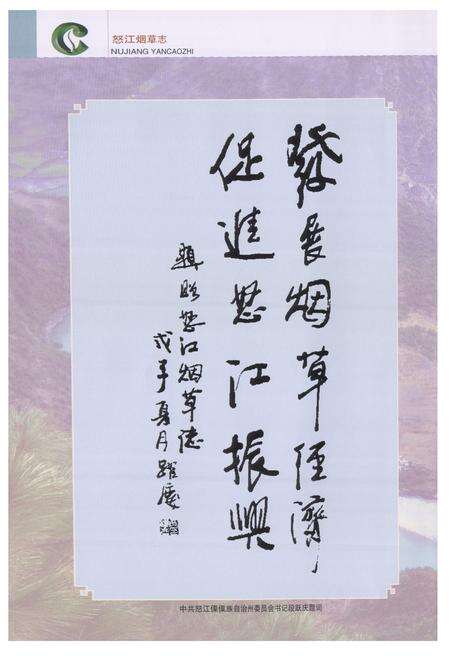 怒江烟草志
NUJIANG YANCAOZHI
發展烟草经濟
促進怒江振興
題贈怒江烟草志
戊子夏月跃慶
中共怒江傈僳族自治州委员会书记段跃庆题词